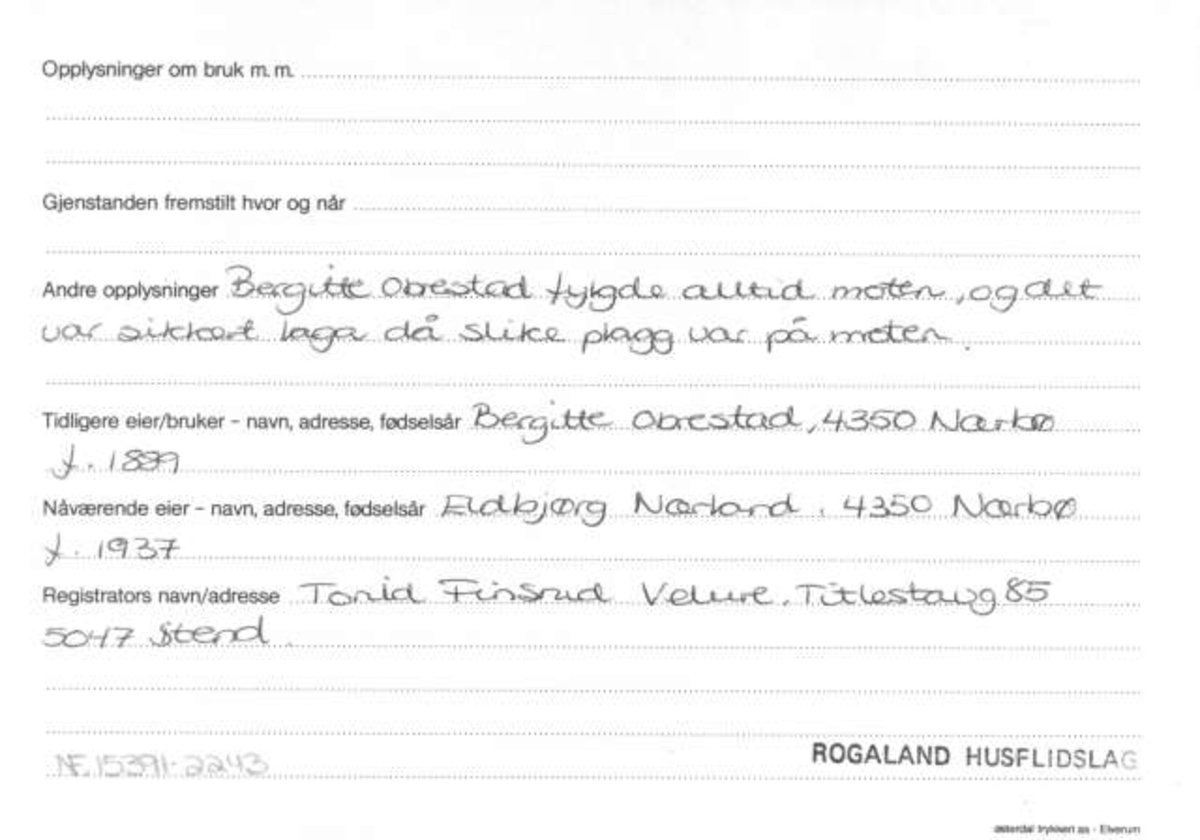 Opplysninger om bruk m. m.
Gjenstanden fremstilt hvor og når
Andre opplysninger Bergitte Obrestad fylgde alltid moten, og det
var sikkert laga då slike plagg var på moten.
Tidligere eier/bruker – navn, adresse, fødselsår Bergitte Obrestad, 4350 Nærbø
f. 1899
Nåværende eier – navn, adresse, fødselsår Eldbjørg Nærland. 4350 Nærbø
f. 1937
Registrators navn/adresse Torid Finsrud Velure. Titlestavg 85
5047 Stend.
NF.15391-2243
ROGALAND HUSFLIDSLAG
østerdal trykkeri as - Elverum